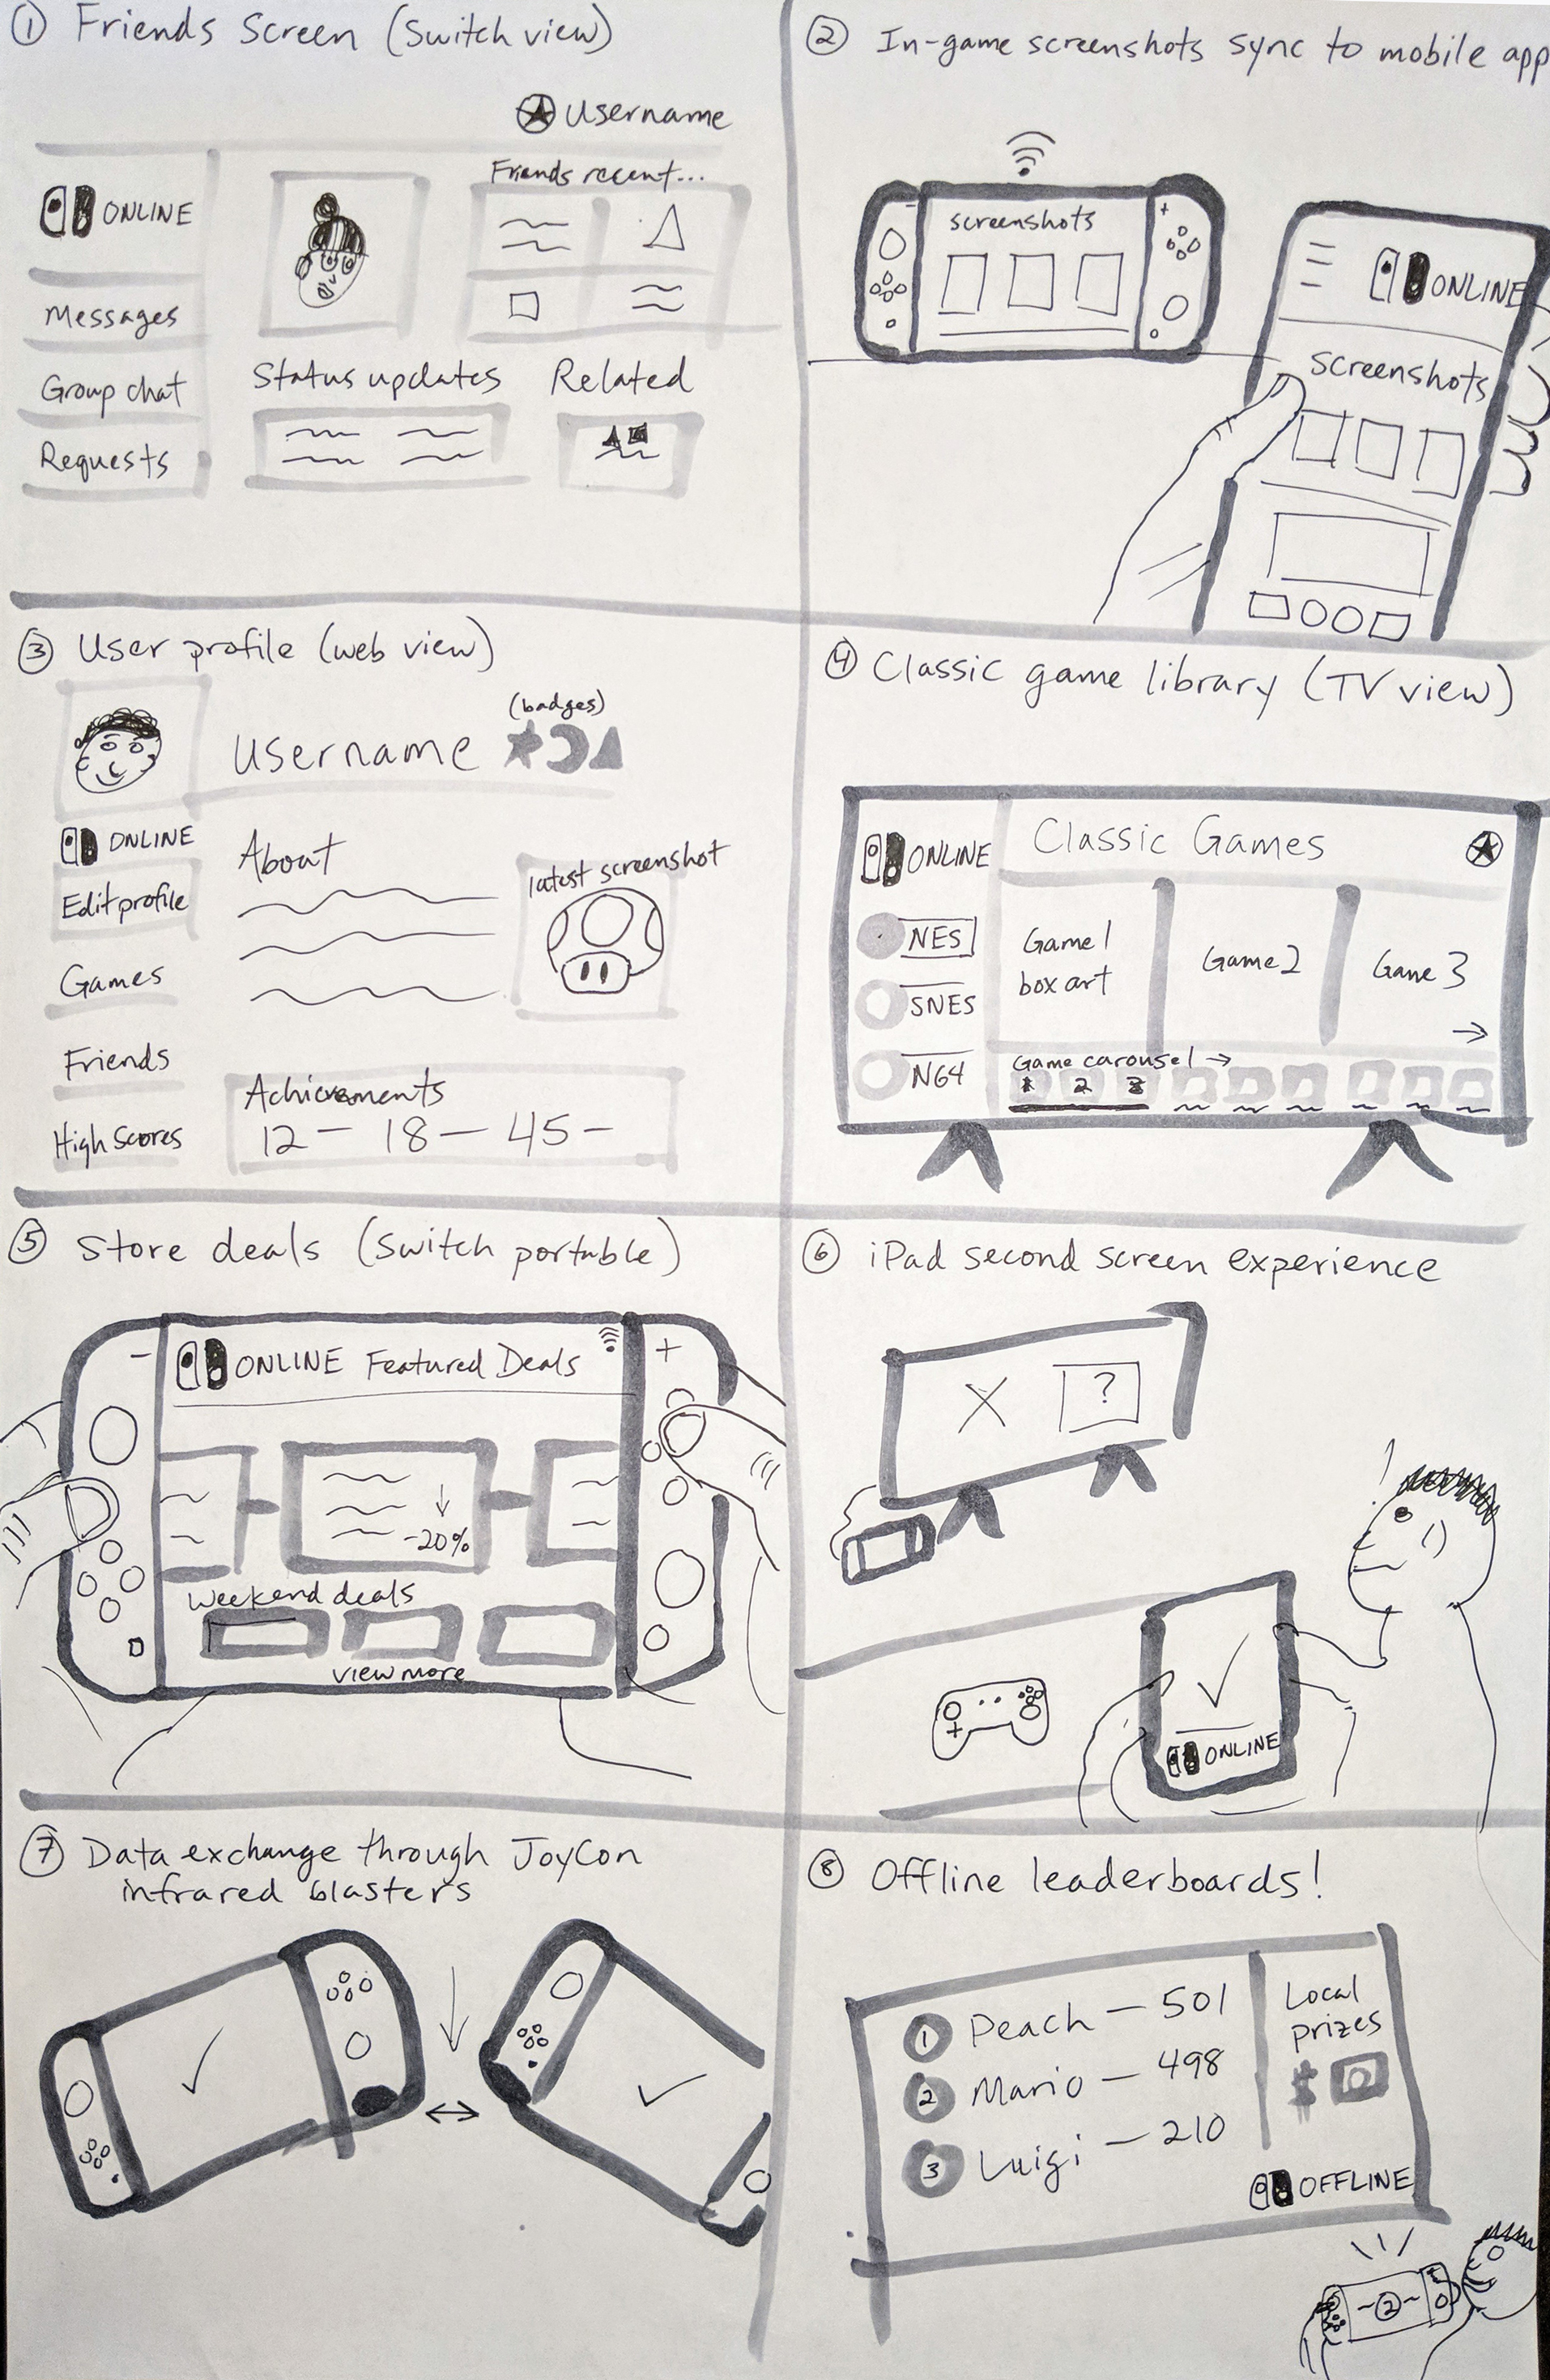 ① Friends Screen (Switch view)
Username
ONLINE
Messages
Group chat
Requests
Friends recent...
Status updates
Related
② In-game screenshots sync to mobile app
screenshots
- +
ONLINE
Screenshots
③ User profile (web view)
Username
(badges)
ONLINE
Edit profile
Games
Friends
High Scores
About
latest screenshot
Achievements
12 — 18 — 45 —
④ Classic game library (TV view)
ONLINE
NES
SNES
N64
Classic Games
Game 1
box art
Game 2
Game 3
→
Game carousel →
1 2 3
⑤ Store deals (Switch portable)
- +
ONLINE Featured Deals
↓
-20%
Weekend deals
view more
⑥ iPad second screen experience
X ?
!
✓
ONLINE
⑦ Data exchange through JoyCon
infrared blasters
✓ ↓ ✓
↔
⑧ Offline leaderboards!
① Peach — 501
② Mario — 498
③ Luigi — 210
Local
prizes
$
OFFLINE
~②~